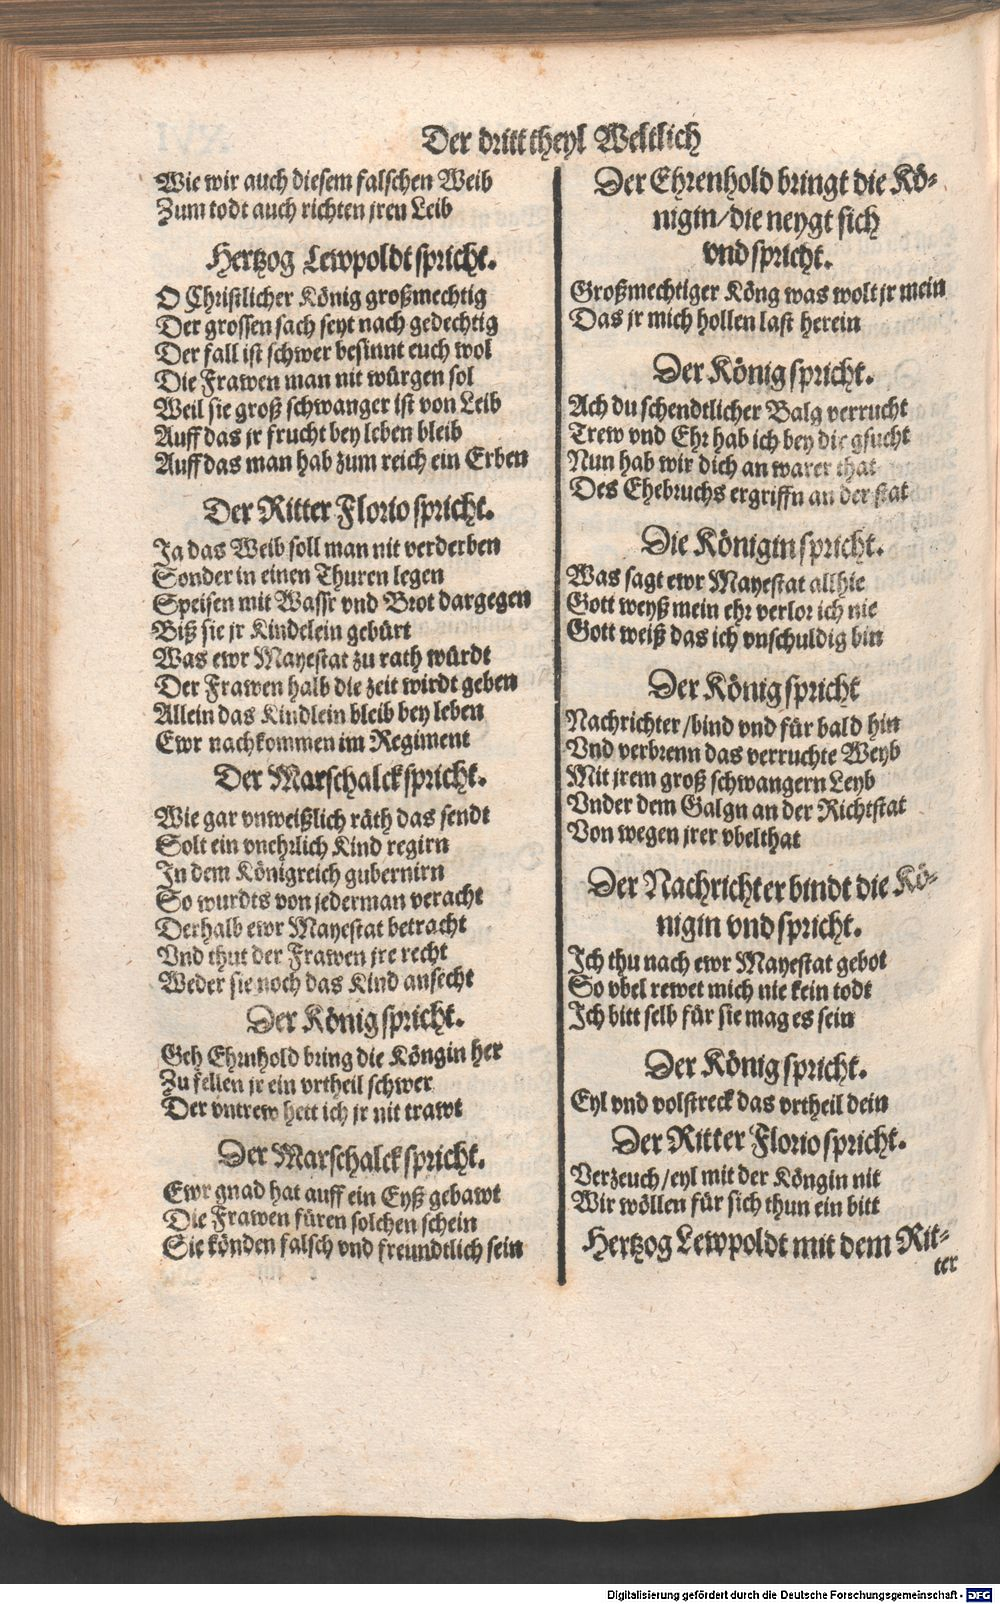 Der dritt theyl Weltlich
Wie wir auch diesem falschen Weib
Zum todt auch richten jren Leib
Hertzog Lewpoldt spricht.
O Christlicher König großmechtig
Der grossen sach seyt nach gedechtig
Der fall ist schwer besinnt euch wol
Die Frawen man nit würgen sol
Weil sie groß schwanger ist von Leib
Auff das jr frucht bey leben bleib
Auff das man hab zum reich ein Erben
Der Ritter Florio spricht.
Ja das Weib soll man nit verderben
Sonder in einen Thuren legen
Speisen mit Wassr vnd Brot dargegen
Biß sie jr Kindelein gebürt
Was ewr Mayestat zu rath würdt
Der Frawen halb die zeit wirdt geben
Allein das Kindlein bleib bey leben
Ewr nachkommen im Regiment
Der Marschalck spricht.
Wie gar vnweißlich räth das sendt
Solt ein vnehrlich Kind regirn
In dem Königreich gubernirn
So wurdts von jederman veracht
Derhalb ewr Mayestat betracht
Vnd thut der Frawen jre recht
Weder sie noch das Kind ansecht
Der König spricht.
Geh Ehrnhold bring die Köngin her
Zu fellen jr ein vrtheil schwer
Der vntrew hett ich jr nit trawt
Der Marschalck spricht.
Ewr gnad hat auff ein Eyß gebawt
Die Frawen füren solchen schein
Sie könden falsch vnd freundtlich sein
Der Ehrenhold bringt die Kö-
nigin/die neygt sich
vnd spricht.
Großmechtiger Köng was wolt jr mein
Das jr mich hollen last herein
Der König spricht.
Ach du schendtlicher Balg verrucht
Trew vnd Ehr hab ich bey dir gsucht
Nun hab wir dich an warer that
Des Ehebruchs ergriffn an der stat
Die Königin spricht.
Was sagt ewr Mayestat allhie
Gott weyß mein ehr verlor ich nie
Gott weiß das ich vnschuldig bin
Der König spricht
Nachrichter/bind vnd für bald hin
Vnd verbrenn das verruchte Weyb
Mit jrem groß schwangern Leyb
Vnder dem Galgn an der Richtstat
Von wegen jrer vbelthat
Der Nachrichter bindt die Kö-
nigin vnd spricht.
Ich thu nach ewr Mayestat gebot
So vbel rewet mich nie kein todt
Ich bitt selb für sie mag es sein
Der König spricht.
Eyl vnd volstreck das vrtheil dein
Der Ritter Florio spricht.
Verzeuch/eyl mit der Köngin nit
Wir wöllen für sich thun ein bitt
Hertzog Lewpoldt mit dem Rit-
ter
Digitalisierung gefördert durch die Deutsche Forschungsgemeinschaft - DFG